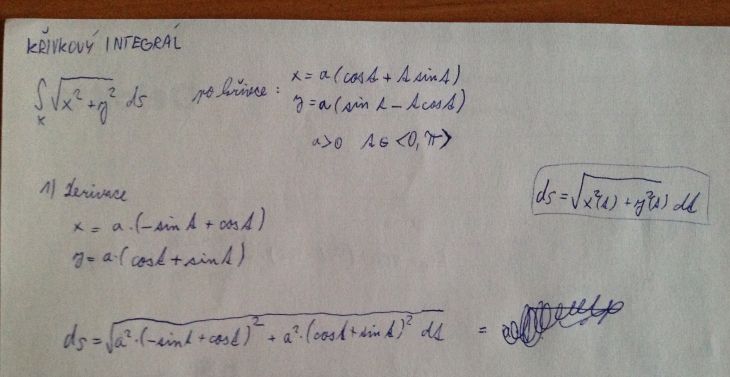 KŘIVKOVÝ INTEGRÁL
∫ₖ √(x² + y²) ds po křivce :
x = a (cos t + t sin t)
y = a (sin t − t cos t)
a > 0 t ∈ <0, π>
1) Derivace
x = a · (−sin t + cos t)
y = a · (cos t + sin t)
ds = √(x²(t) + y²(t)) dt
ds = √(a² · (−sin t + cos t)² + a² · (cos t + sin t)² dt) =